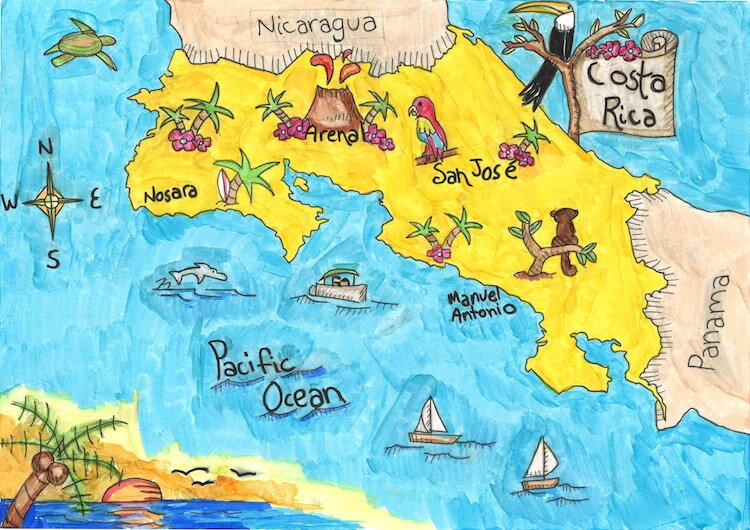 Nicaragua
Costa
Rica
Arenal
San José
Nosara
N
W
E
S
Manuel
Antonio
Panama
Pacific
Ocean